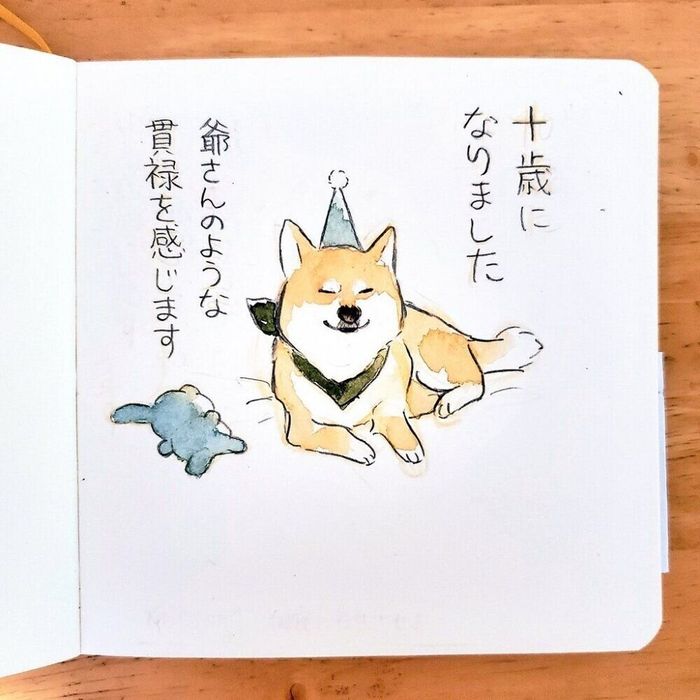 十歳に
なりました
爺さんのような
貫禄を感じます